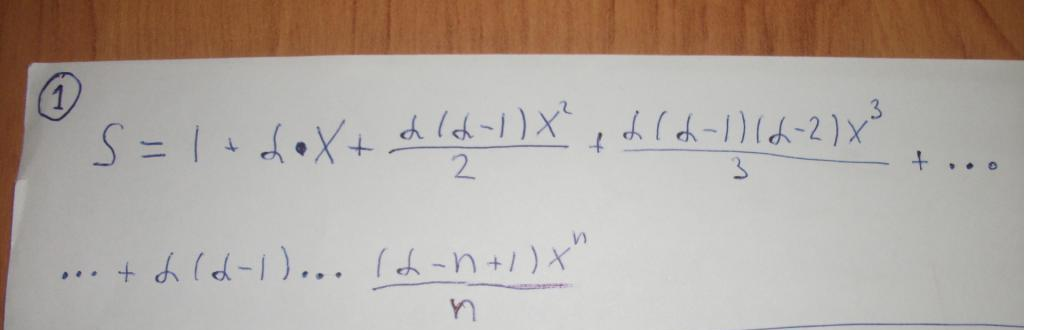 ①
S = 1 + α•X + α(α-1)X²/2 + α(α-1)(α-2)X³/3 + ...
... + α(α-1)... (α-n+1)xⁿ/n